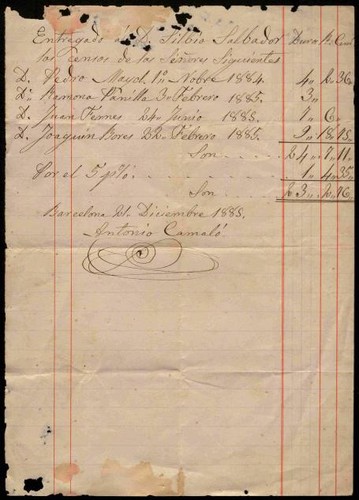 Entregado á D. Silvio Salbador Duros R. Cens.
los Censos de los Señores Siguientes
D. Pedro Mayol 1º Nobre 1884. 4,, 2,, 36,,
Dª Ramona Vanilla 3 Febrero 1885. 3,,
D. Juan Fermes 24 Junio 1885. 1,, 6,,
D. Joaquin Bores 22 Febrero 1885.
Son 24,, 7,, 11.
Por el 5 p% 1,, 4,, 35.
Son 23,, 2,, 76,,
Barcelona 21 Diciembre 1885.
Antonio Camaló